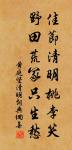 佳節清明桃李笑
野田荒冢只生愁
黄庭堅清明